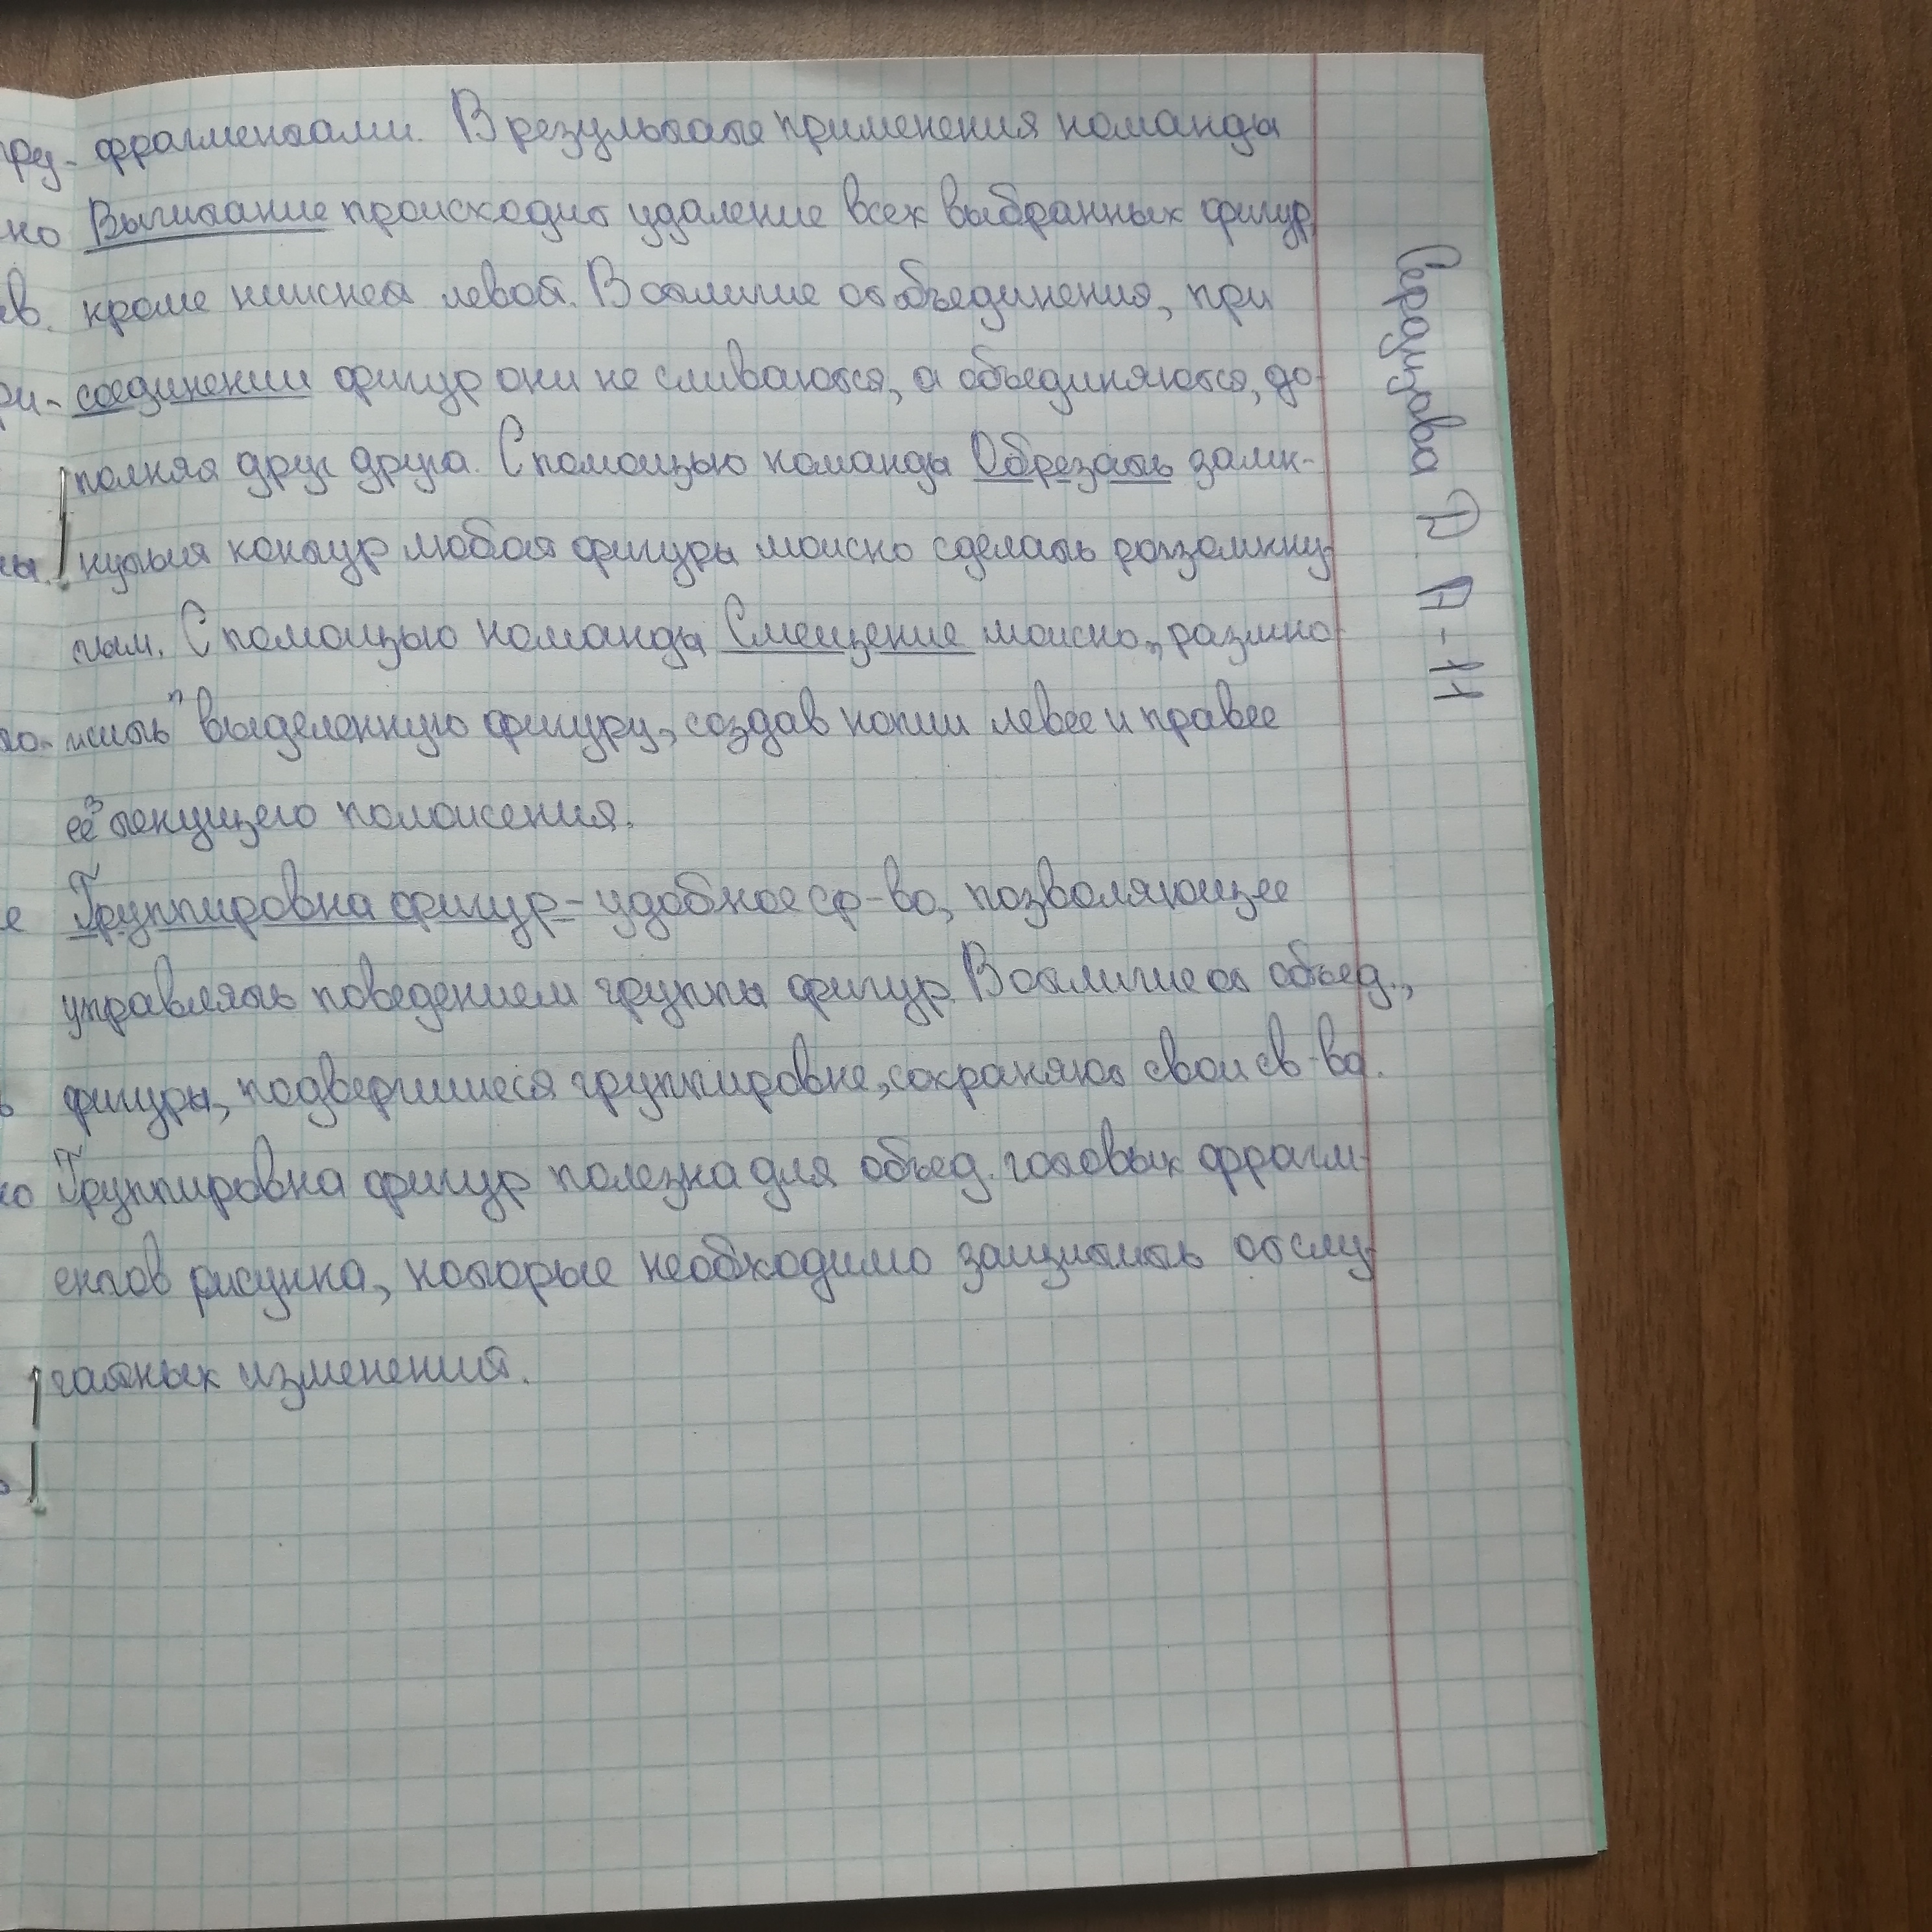 фрагментами. В результате применения команды
Вычитание происходит удаление всех выбранных фигур,
кроме нижней левой. В отличие от объединения, при
соединении фигур они не сливаются, а объединяются, до-
полняя друг друга. С помощью команды Обрезать замк-
нутый контур любой фигуры можно сделать разомкну-
тым. С помощью команды Смещение можно „размно-
жить" выделенную фигуру, создав копии левее и правее
её текущего положения.
Группировка фигур - удобное ср-во, позволяющее
управлять поведением группы фигур. В отличие от объед.,
фигуры, подвергшиеся группировке, сохраняют свои св-ва.
Группировка фигур полезна для объед. готовых фрагм-
ентов рисунка, которые необходимо защитить от слу-
чайных изменений.
ру-
но
ев.
ри-
ны.
го-
е
ь
ко